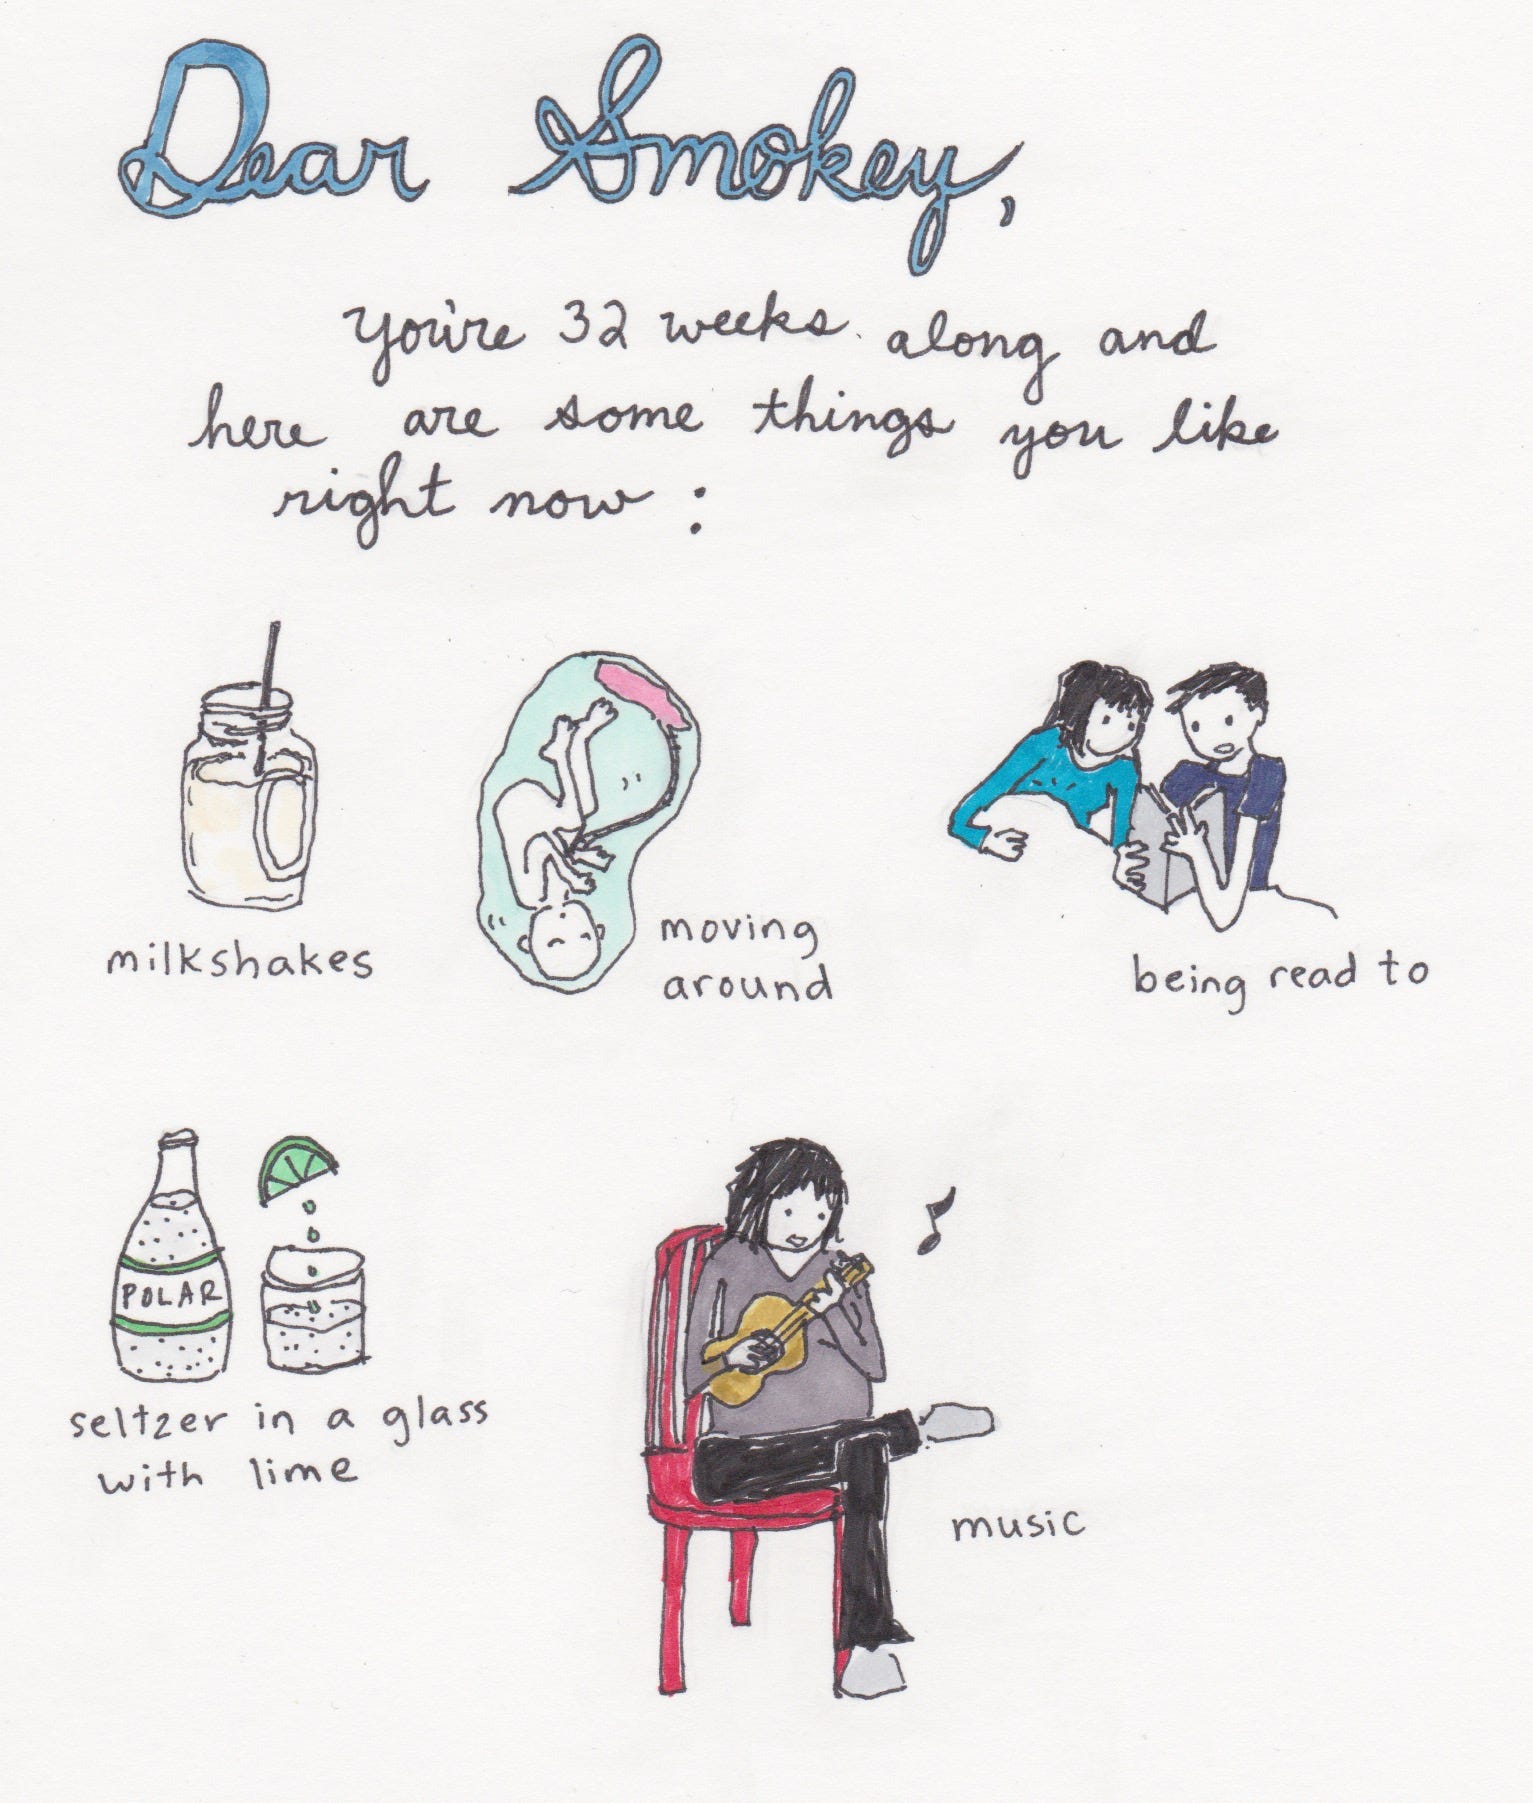 Dear Smokey,
You're 32 weeks along and
here are some things you like
right now:
milkshakes
moving
around
being read to
POLAR
seltzer in a glass
with lime
music